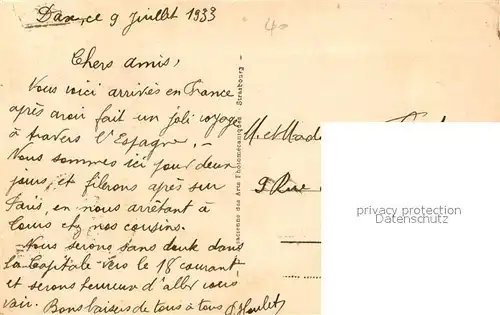 Dax, ce 9 Juillet 1933
Chers amis,
Nous voici arrivés en France
après avoir fait un joli voyage
à travers l'Espagne. -
Nous sommes ici pour deux
jours, et filerons après sur
Paris, en nous arrêtant à
Tours chez nos cousins.
Nous serons sans doute dans
la Capitale vers le 18 courant,
et serons heureux d'aller vous
voir. Bons baisers de tous à tous
des Arts Photomécaniques - Strasbourg -
M. et Mada
9 Rue
privacy protection
Datenschutz